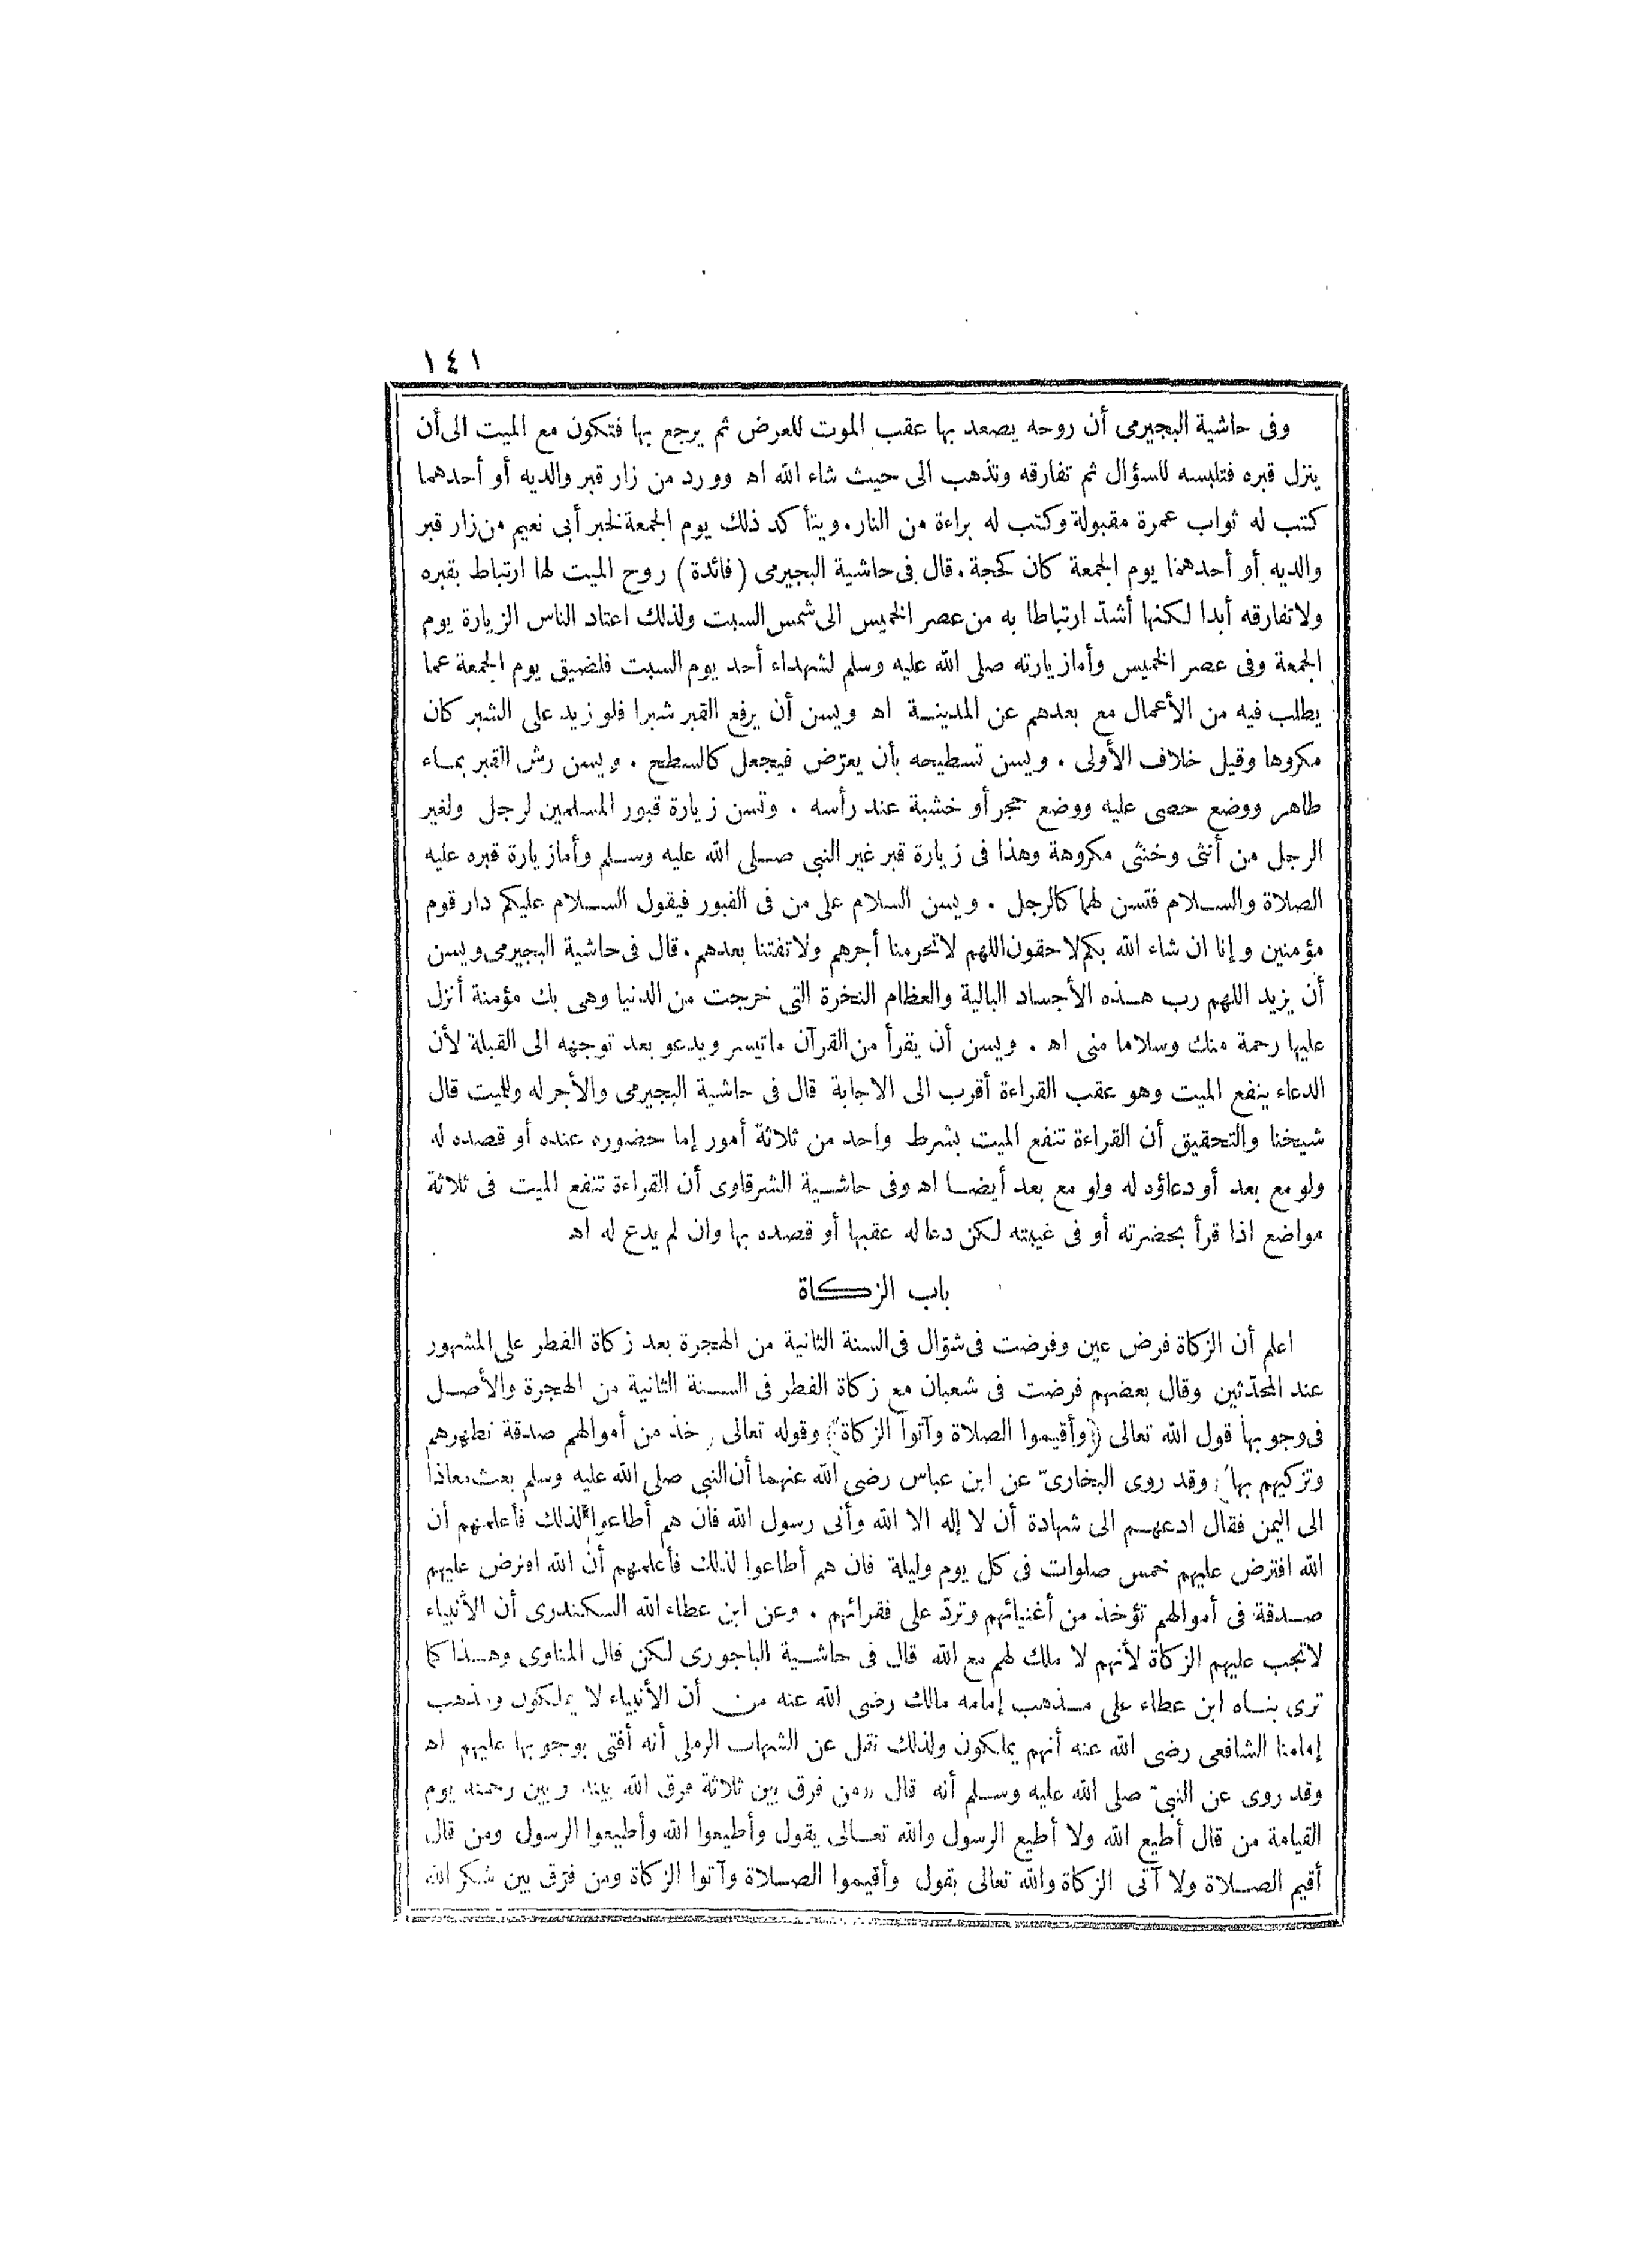 ١٤١
وفى حاشية البجيرمى أن روحه يصعد بها عقب الموت للعرض ثم يرجع بها فتكون مع الميت الى أن
ينزل قبره فتلبسه للسؤال ثم تفارقه وتذهب الى حيث شاء الله اه وورد من زار قبر والديه أو أحدهما
كتب له ثواب عمرة مقبولة وكتب له براءة من النار. ويتأكد ذلك يوم الجمعة لخبر أبى نعيم من زار قبر
والديه أو أحدهما يوم الجمعة كان كحجة. قال فى حاشية البجيرمى (فائدة) روح الميت لها ارتباط بقبره
ولا تفارقه أبدا لكنها أشدّ ارتباطا به من عصر الخميس الى شمس السبت ولذلك اعتاد الناس الزيارة يوم
الجمعة وفى عصر الخميس وأما زيارته صلى الله عليه وسلم لشهداء أحد يوم السبت فلضيق يوم الجمعة عما
يطلب فيه من الأعمال مع بعدهم عن المدينة اه ويسن أن يرفع القبر شبرا فلو زيد على الشبر كان
مكروها وقيل خلاف الأولى . ويسن تسطيحه بأن يعرّض فيجعل كالسطح . ويسن رش القبر بماء
طاهر ووضع حصى عليه ووضع حجر أو خشبة عند رأسه . وتسن زيارة قبور المسلمين لرجل ولغير
الرجل من أنثى وخنثى مكروهة وهذا فى زيارة قبر غير النبي صلى الله عليه وسلم وأما زيارة قبره عليه
الصلاة والسلام فتسن لهما كالرجل . ويسن السلام على من فى القبور فيقول السلام عليكم دار قوم
مؤمنين وإنا ان شاء الله بكم لاحقون اللهم لا تحرمنا أجرهم ولا تفتنا بعدهم. قال فى حاشية البجيرمى ويسن
أن يزيد اللهم رب هذه الأجساد البالية والعظام النخرة التى خرجت من الدنيا وهى بك مؤمنة أنزل
عليها رحمة منك وسلاما منى اه . ويسن أن يقرأ من القرآن ما تيسر ويدعو بعد توجهه الى القبلة لأن
الدعاء ينفع الميت وهو عقب القراءة أقرب الى الاجابة قال فى حاشية البجيرمى والأجر له وللميت قال
شيخنا والتحقيق أن القراءة تنفع الميت بشرط واحد من ثلاثة أمور إما حضوره عنده أو قصده له
ولو مع بعد أو دعاؤه له ولو مع بعد أيضا اه وفى حاشية الشرقاوى أن القراءة تنفع الميت فى ثلاثة
مواضع اذا قرأ بحضرته أو فى غيبته لكن دعا له عقبها أو قصده بها وان لم يدع له اه
باب الزكاة
اعلم أن الزكاة فرض عين وفرضت فى شوّال فى السنة الثانية من الهجرة بعد زكاة الفطر على المشهور
عند المحدّثين وقال بعضهم فرضت فى شعبان مع زكاة الفطر فى السنة الثانية من الهجرة والأصل
فى وجوبها قول الله تعالى (وأقيموا الصلاة وآتوا الزكاة) وقوله تعالى خذ من أموالهم صدقة تطهرهم
وتزكيهم بها وقد روى البخارىّ عن ابن عباس رضى الله عنهما أن النبي صلى الله عليه وسلم بعث معاذا
الى اليمن فقال ادعهم الى شهادة أن لا إله الا الله وأنى رسول الله فان هم أطاعوا لذلك فأعلمهم أن
الله افترض عليهم خمس صلوات فى كل يوم وليلة فان هم أطاعوا لذلك فأعلمهم أن الله افترض عليهم
صدقة فى أموالهم تؤخذ من أغنيائهم وتردّ على فقرائهم . وعن ابن عطاء الله السكندرى أن الأنبياء
لا تجب عليهم الزكاة لأنهم لا ملك لهم مع الله قال فى حاشية الباجورى لكن قال المناوى وهذا كما
ترى بناه ابن عطاء على مذهب إمامه مالك رضى الله عنه من أن الأنبياء لا يملكون ومذهب
إمامنا الشافعى رضى الله عنه أنهم يملكون ولذلك نقل عن الشهاب الرملى أنه أفتى بوجوبها عليهم اه
وقد روى عن النبىّ صلى الله عليه وسلم أنه قال «من فرق بين ثلاثة فرق الله بينه وبين رحمته يوم
القيامة من قال أطيع الله ولا أطيع الرسول والله تعالى يقول وأطيعوا الله وأطيعوا الرسول ومن قال
أقيم الصلاة ولا آتى الزكاة والله تعالى يقول وأقيموا الصلاة وآتوا الزكاة ومن فرّق بين شكر الله